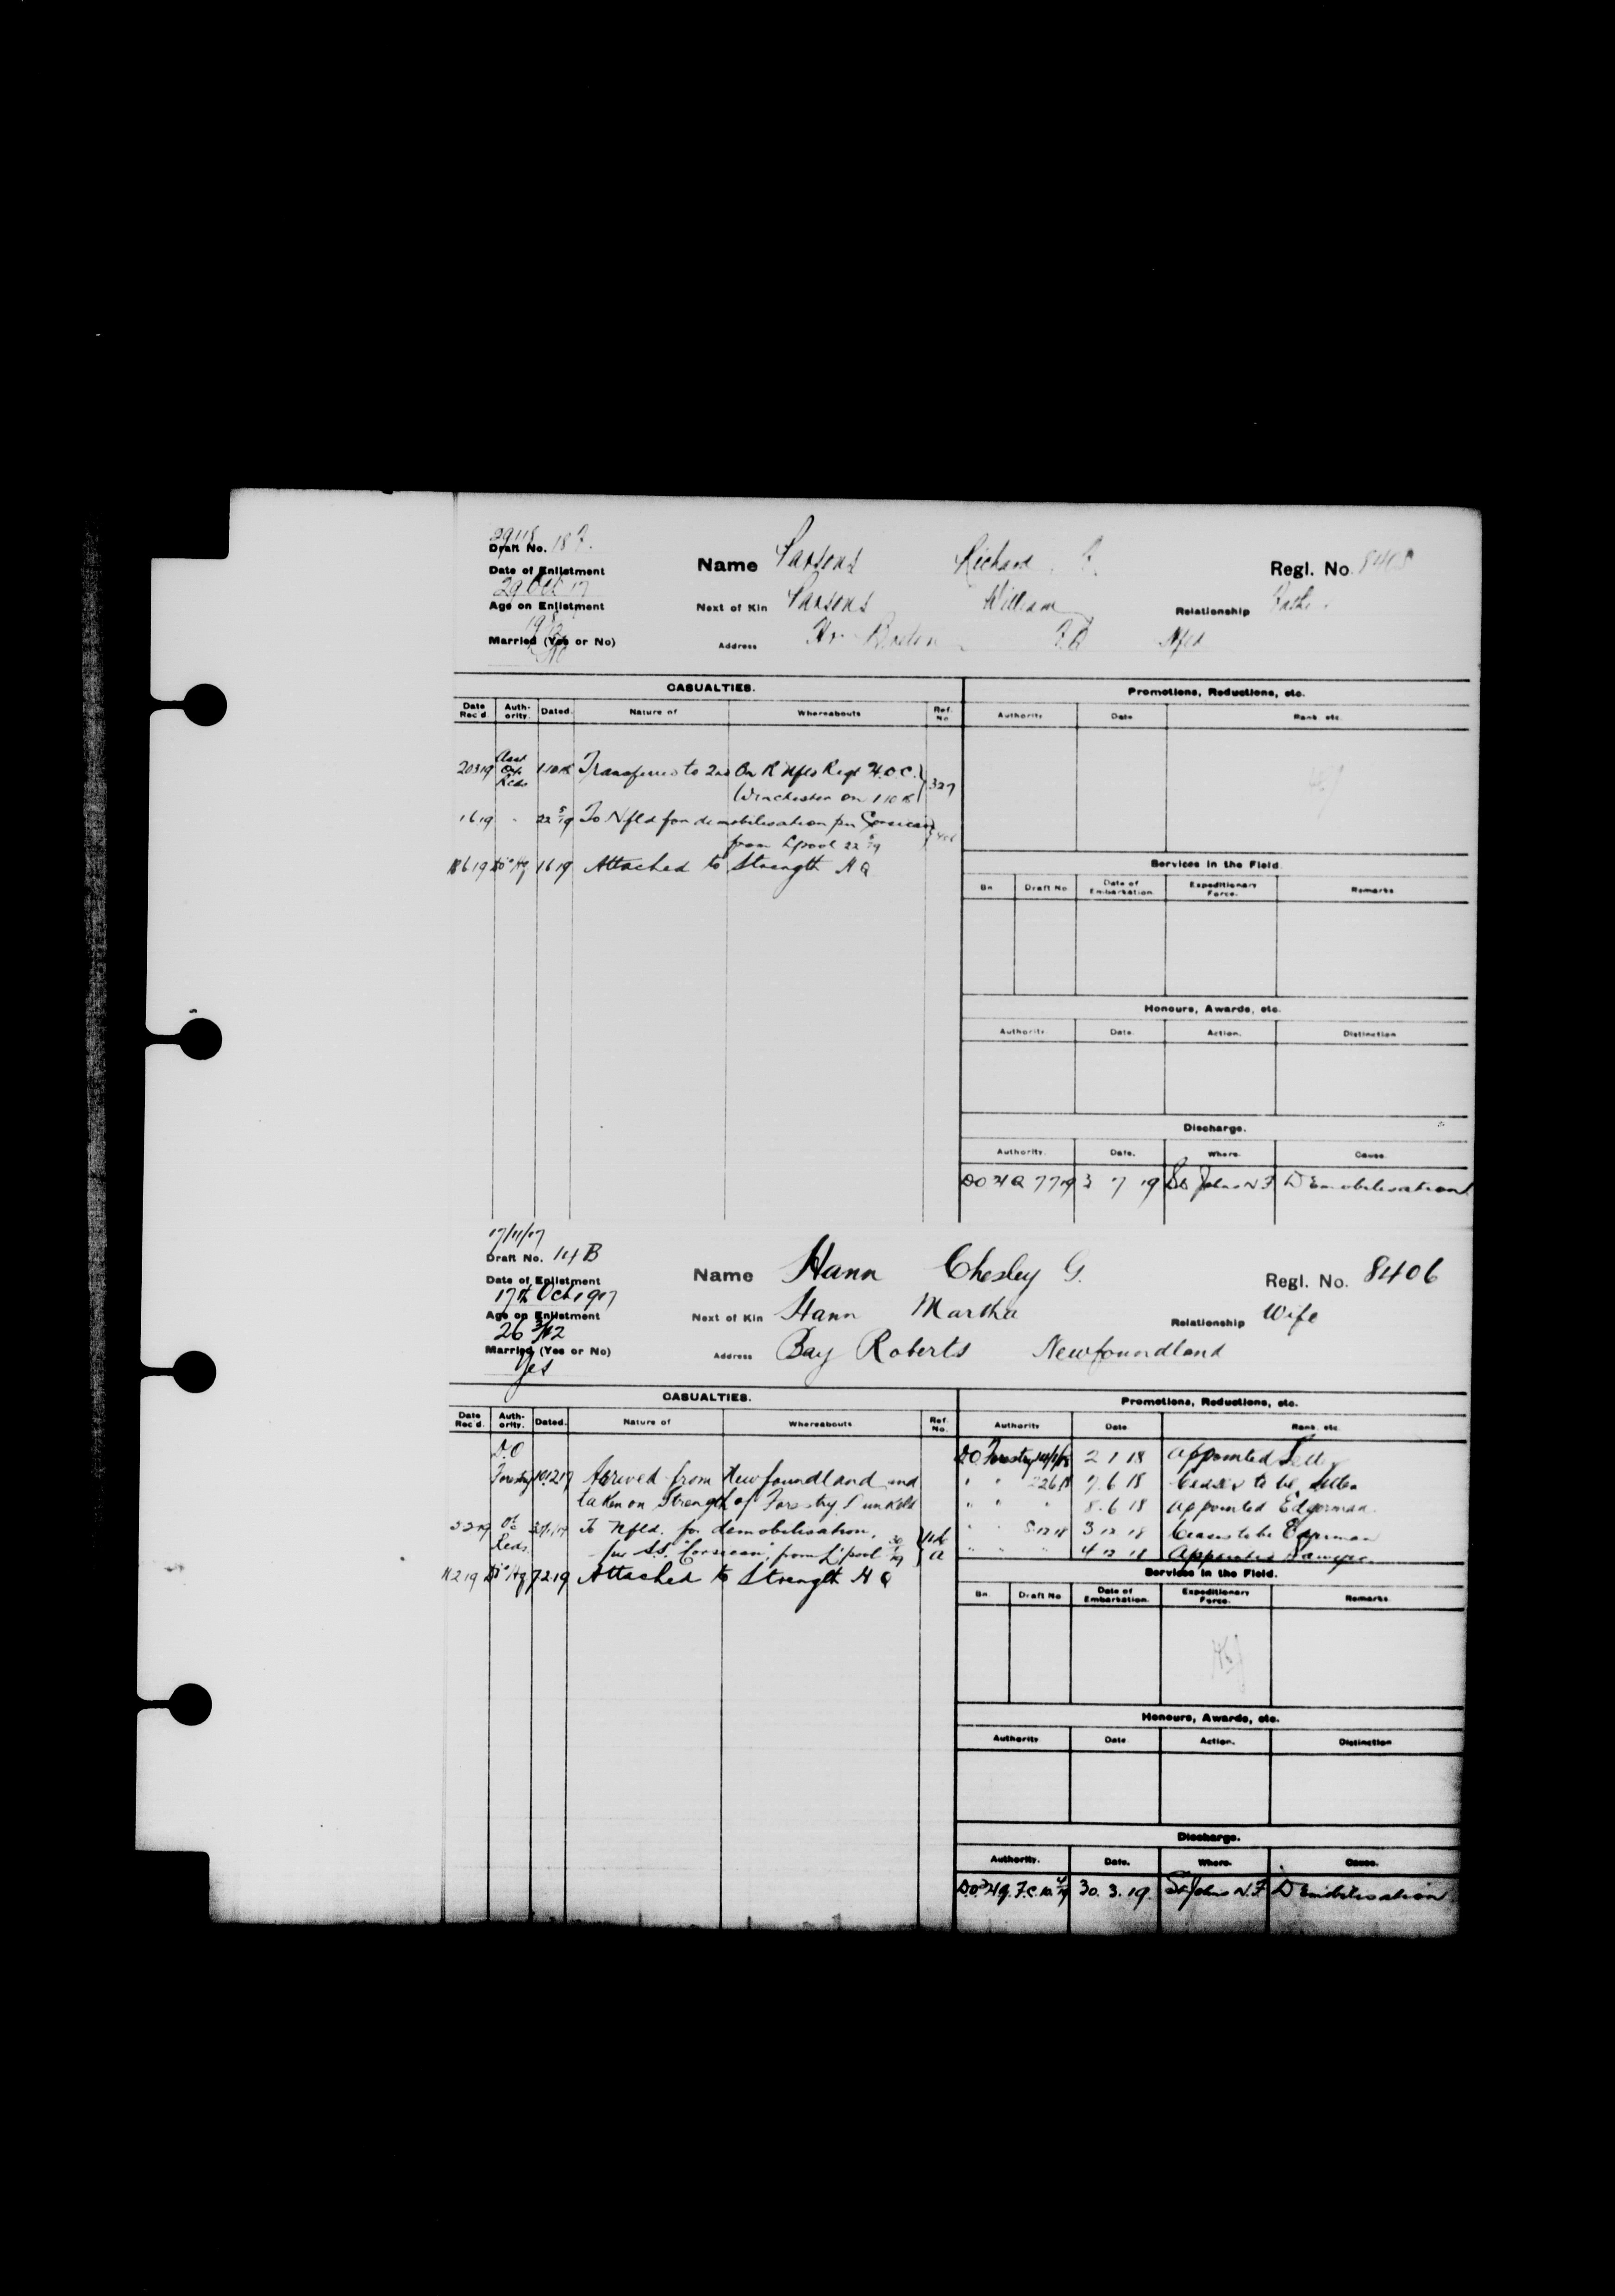 29 1 18
Draft No. 18 F.
Name Parsons Richard F. Regl. No.
Date of Enlistment
29 Oct 17
Next of Kin Parsons William Relationship Father
Age on Enlistment
Married (Yes or No)
Address Hr. Breton F.B Nfld
CASUALTIES. Promotions, Reductions, etc.
Date Rec'd. Auth-ority. Dated. Nature of Whereabouts Ref. No. Authority Date Rank etc.
20 3 19 Recds 1 10 18 Transferred to 2nd Bn R Nfld Regt H.O.C. 327
Winchester on 1 10 18
1 6 19 " 22 5/19 To Nfld for demobilisation per Corsican
from L'pool 22 5/19
18 6 19 DO Hq 1 6 19 Attached to Strength H Q
Services in the Field.
Bn. Draft No Date of Embarkation. Expeditionary Force. Remarks
Honours, Awards, etc.
Authority. Date. Action. Distinction
Discharge.
Authority. Date. Where. Cause.
DO H Q 7 7 19 3 7 19 St Johns N.F Demobilisation
17/11/17
Draft No. 14 B
Name Hann Chesley G. Regl. No. 8406
Date of Enlistment
17th Oct 1917
Next of Kin Hann Martha Relationship Wife
Age on Enlistment
26 3/12
Married (Yes or No)
Yes
Address Bay Roberts Newfoundland
CASUALTIES. Promotions, Reductions, etc.
Date Rec'd. Auth-ority. Dated. Nature of Whereabouts Ref. No. Authority Date Rank etc.
D.O DO Forestry 2 1 18 appointed Setter
Forestry 10 12 17 Arrived from Newfoundland and " " 26 18 7. 6 18 Ceases to be Setter
taken on Strength of Forestry Dunkeld " " " 8. 6 18 appointed Edgerman
5 2 19 Recds To Nfld. for demobilisation, " " 8 12 18 3 12 18 Ceases to be Edgerman
per S.S. "Corsican", from L'pool 30/1/19 " " " 4 12 18 Appointed Sawyer
11 2 19 DO Hq 7 2 19 Attached to Strength H Q
Services in the Field.
Bn. Draft No Date of Embarkation. Expeditionary Force. Remarks.
Honours, Awards, etc.
Authority Date Action. Distinction
Discharge.
Authority. Date. Where. Cause.
D.O. Hq. F.C. 30. 3. 19. St Johns N.F Demobilisation